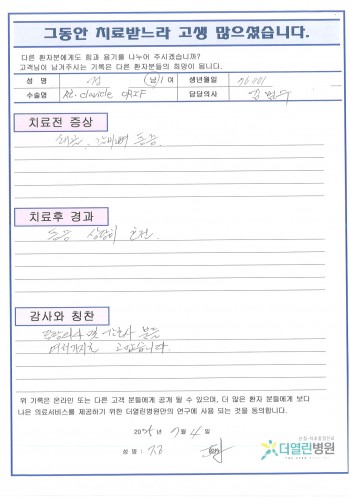 그동안 치료받느라 고생 많으셨습니다.
다른 환자분에게도 힘과 용기를 나누어 주시겠습니까?
고객님이 남겨주시는 기록은 다른 환자분들의 희망이 됩니다.
성 명 (남) / 여 생년월일
수술명 ORIF 담당의사
치료전 증상
통증
치료후 경과
통증 상당히 호전
감사와 칭찬
담당의사 및 간호사 분들
여러가지로 고맙습니다.
위 기록은 온라인 또는 다른 고객 분들에게 공개 될 수 있으며, 더 많은 환자 분들에게 보다
나은 의료서비스를 제공하기 위한 더열린병원만의 연구에 사용 되는 것을 동의합니다.
년 7월 4일
성 명 :
더열린병원